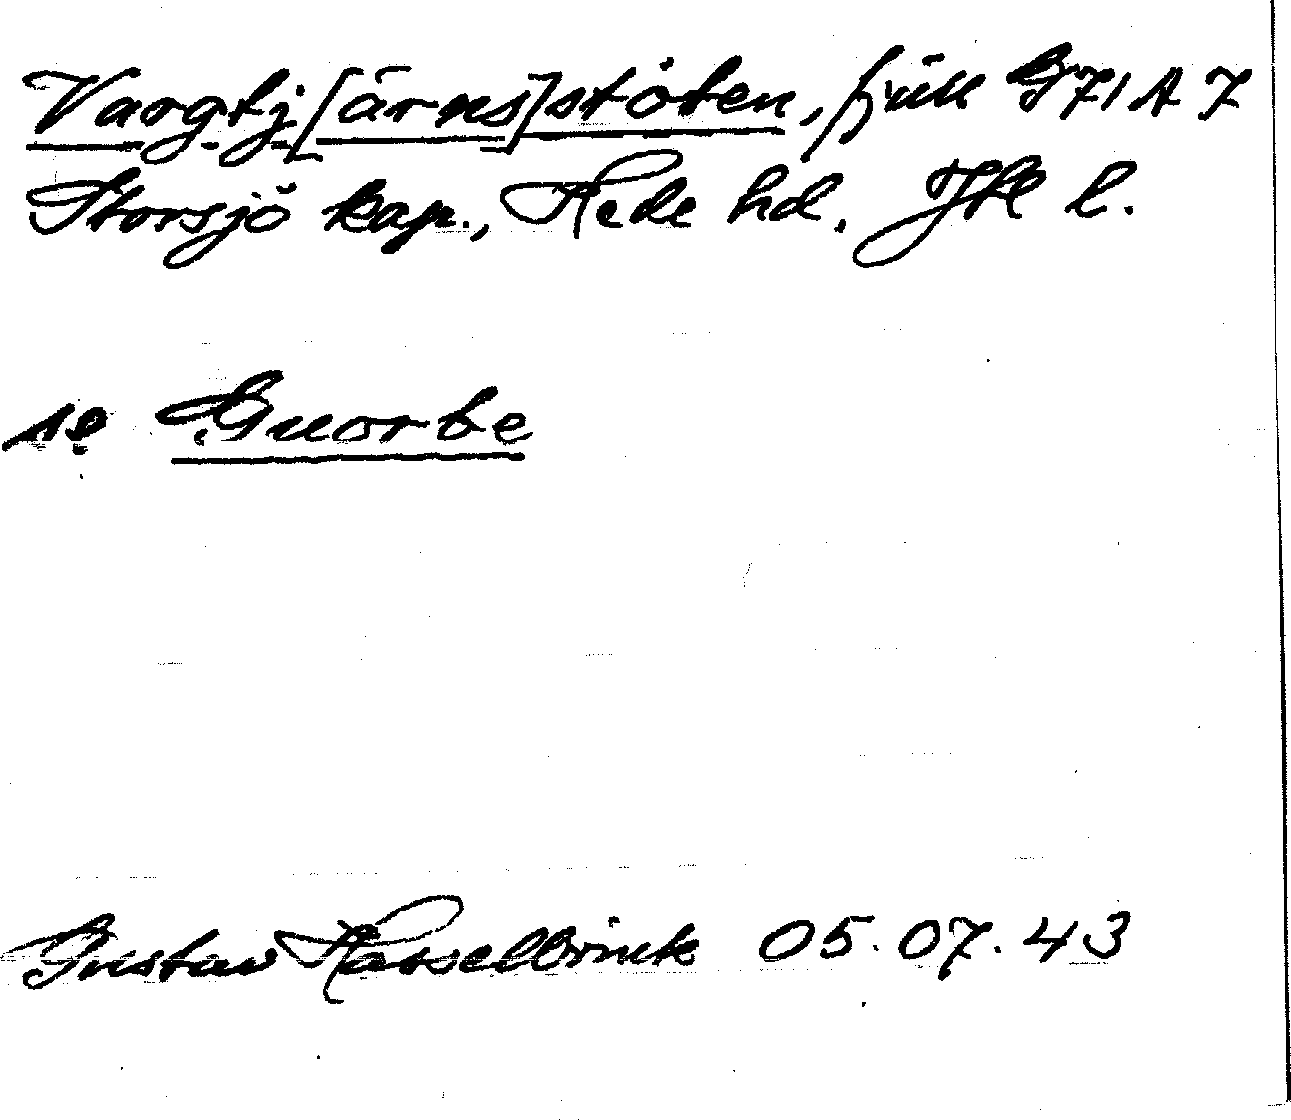 Vargtj[ärns]stöten, fjäll G 71 A 7
Storsjö kap., Hede hd. Jtl l.
se Guorbe
Gustav Hasselbrink 05.07.43